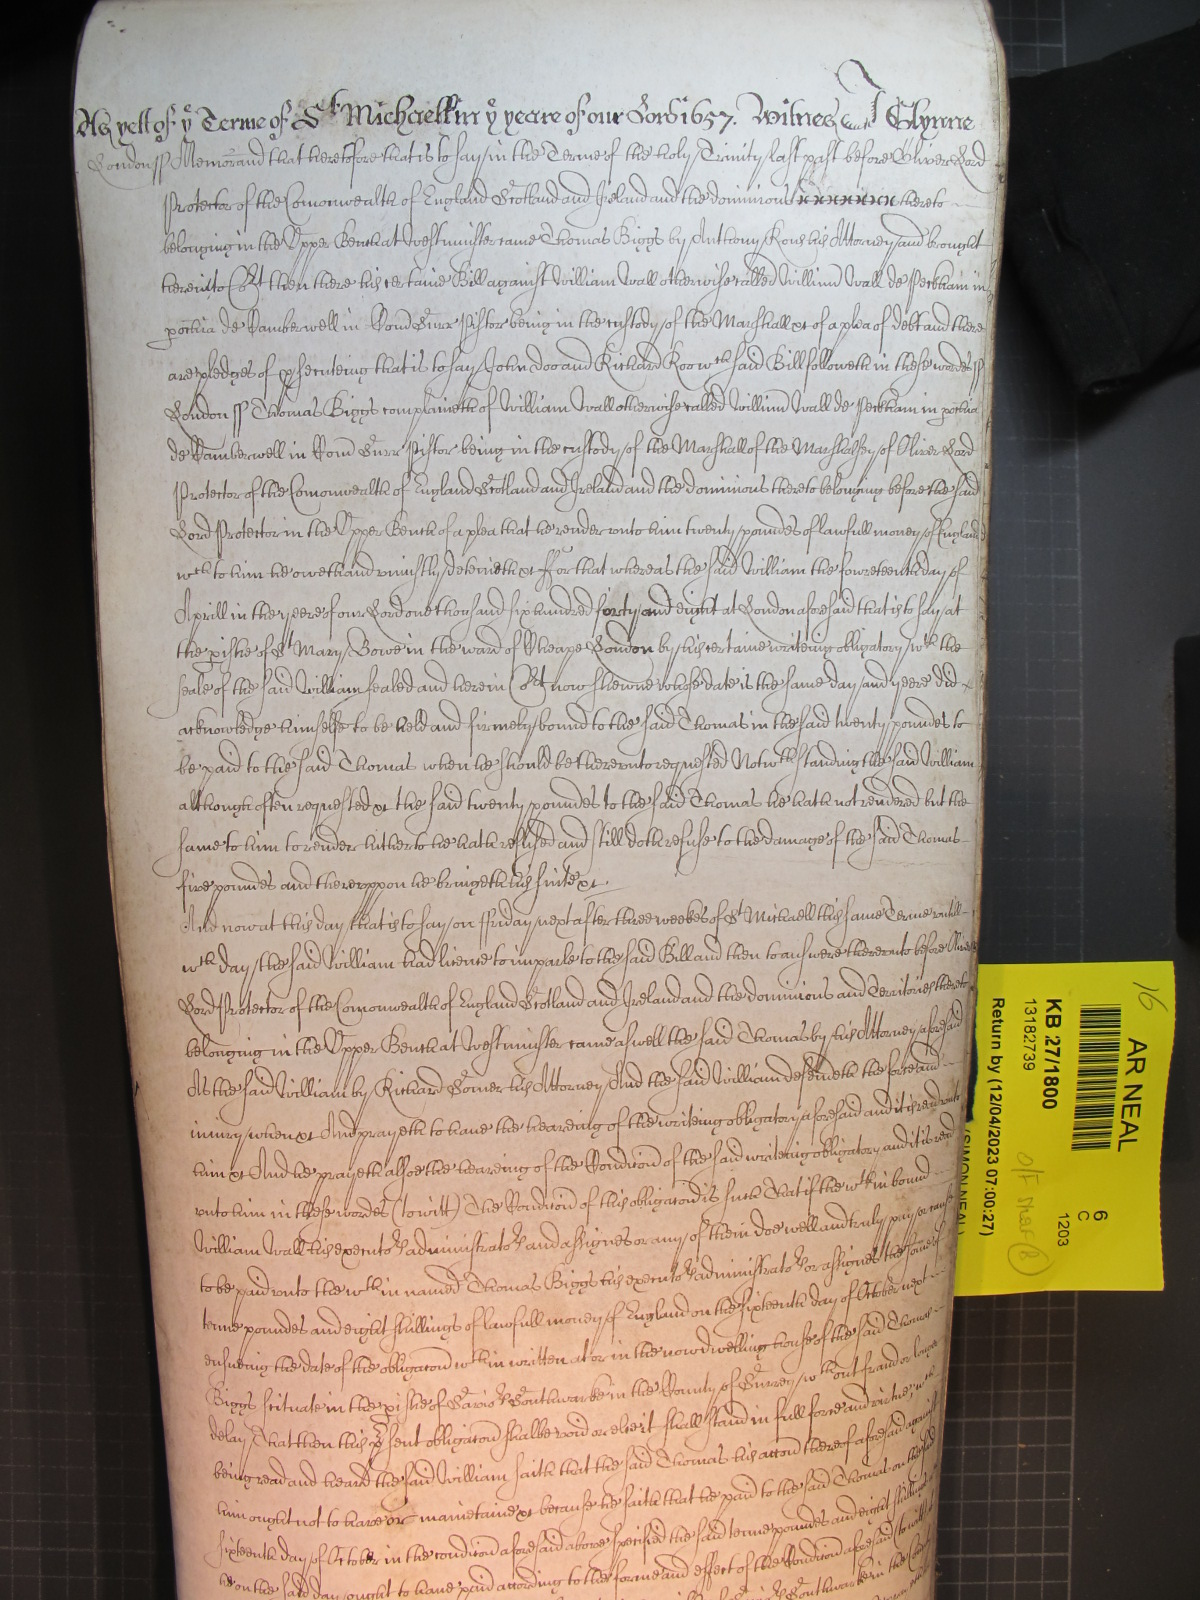 As yett of yͤ Terme of Sᵗ Michaell in yͤ yeare of our Lord 1657. Witnes J Glynne
London ss Memorand that heretofore that is to say in the Terme of the holy Trinity last past before Oliver Lord
Protector of the Comonwealth of England Scotland and Ireland and the dominions thereto
belonging in the Upper Bench at Westminster came Thomas Biggs by Anthony Rous his Attorney and brought
here into Coᵗ then there his certaine Bill against William Wall otherwise called Willim Wall de Peckham in
pochia de Camberwell in Com Surr Pistor being in the custody of the Marshall &c of a plea of debt and there
are pledges of psecuteing that is to say John Doo and Richard Roo wᶜʰ said Bill followeth in these wordes ss
London ss Thomas Biggs complaineth of William Wall otherwise called Willim Wall de Peckham in pochia
de Camberwell in Com Surr Pistor being in the custody of the Marshall of the Marshalsey of Oliver Lord
Protector of the Comonwealth of England Scotland and Ireland and the dominions thereto belonging before the said
Lord Protector in the Upper Bench of a plea that he render unto him twenty poundes of lawfull money of England
wᶜʰ to him he oweth and uniustly deteineth &c ffor that whereas the said William the fowreteenth day of
Aprill in the yeere of our Lord one thousand six hundred forty and eight at London aforesaid that is to say at
the pishe of Sᵗ Mary Bowe in the ward of Cheape London by his certaine writeing obligatory wᵗʰ the
seale of the said William sealed and here in Coᵗ now shewne whose date is the same day and yeere did
acknowledge himselfe to be held and firmely bound to the said Thomas in the said twenty poundes to
be paid to the said Thomas when he should be thereunto requested Notwᵗʰstanding the said William
although often requested &c the said twenty poundes to the said Thomas he hath not rendered but the
same to him to render hitherto he hath refused and still doth refuse to the damage of the said Thomas
five poundes and thereuppon he bringeth this suite &c
And now at this day that is to say on ffriday next after three weekes of Sᵗ Michaell this same Terme untill
wᶜʰ day the said William had licence to imparle to the said Bill and then to answere thereunto before Oliver
Lord Protector of the Comonwealth of England Scotland and Ireland and the dominions and Territories thereto
belonging in the Upper Bench at Westminster came aswell the said Thomas by his Attorney aforesaid
As the said William by Richard Gomer his Attorney And the said William defendeth the force and
iniury when &c And prayeth to have the heareing of the writeing obligatory aforesaid and it is read unto
him &c And he prayeth alsoe the heareing of the Condicon of the said writeing obligatory and it is read
unto him in these wordes (to witt) The Condicon of this obligacon is such That if the wᵗʰin bound
William Wall his executoʳˢ administratoʳˢ and assignes or any of them doe well and truly pay or cause
to be paid unto the wᵗʰin named Thomas Biggs his executoʳˢ administratoʳˢ or assignes the some of
tenne poundes and eight shillings of lawfull money of England on the sixteenth day of October next
ensueing the date of the obligacon wᵗʰin written at or in the now dwelling house of the said Thomas
Biggs scituate in the pishe of Savioʳˢ Southwarke in the County of Surrey wᵗʰout fraud or longer
delay That then this psent obligacon shalbe void or else it shall stand in full force and virtue, wᶜʰ
being read and heard the said William saith that the said Thomas his accon thereof aforesaid against
him ought not to have or maintaine &c because he saith that he paid to the said Thomas on the said
sixteenth day of October in the condicon aforesaid above specified the said tenne poundes and eight shillings
he on the said day ought to have paid according to the forme and effect of the Condicon aforesaid to witt at
Southwarke in the
16
AR NEAL
6
C
1203
KB 27/1800
13182739
Return by (12/04/2023 07:00:27)
(SIMON NEAL)